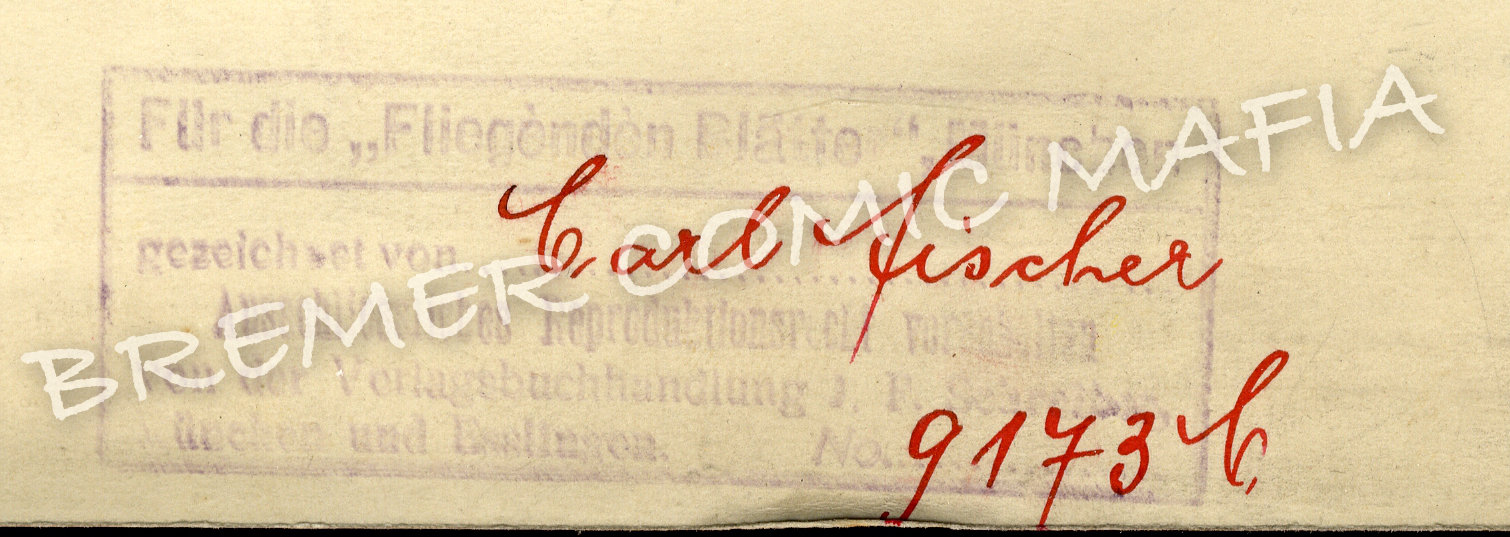 Für die „Fliegenden Blätter“, München
gezeichnet von Carl Fischer
Ausschließliches Reproduktionsrecht vorbehalten
von der Verlagsbuchhandlung J. F. Schreiber,
München und Esslingen. No. 9173 C
BREMER COMIC MAFIA